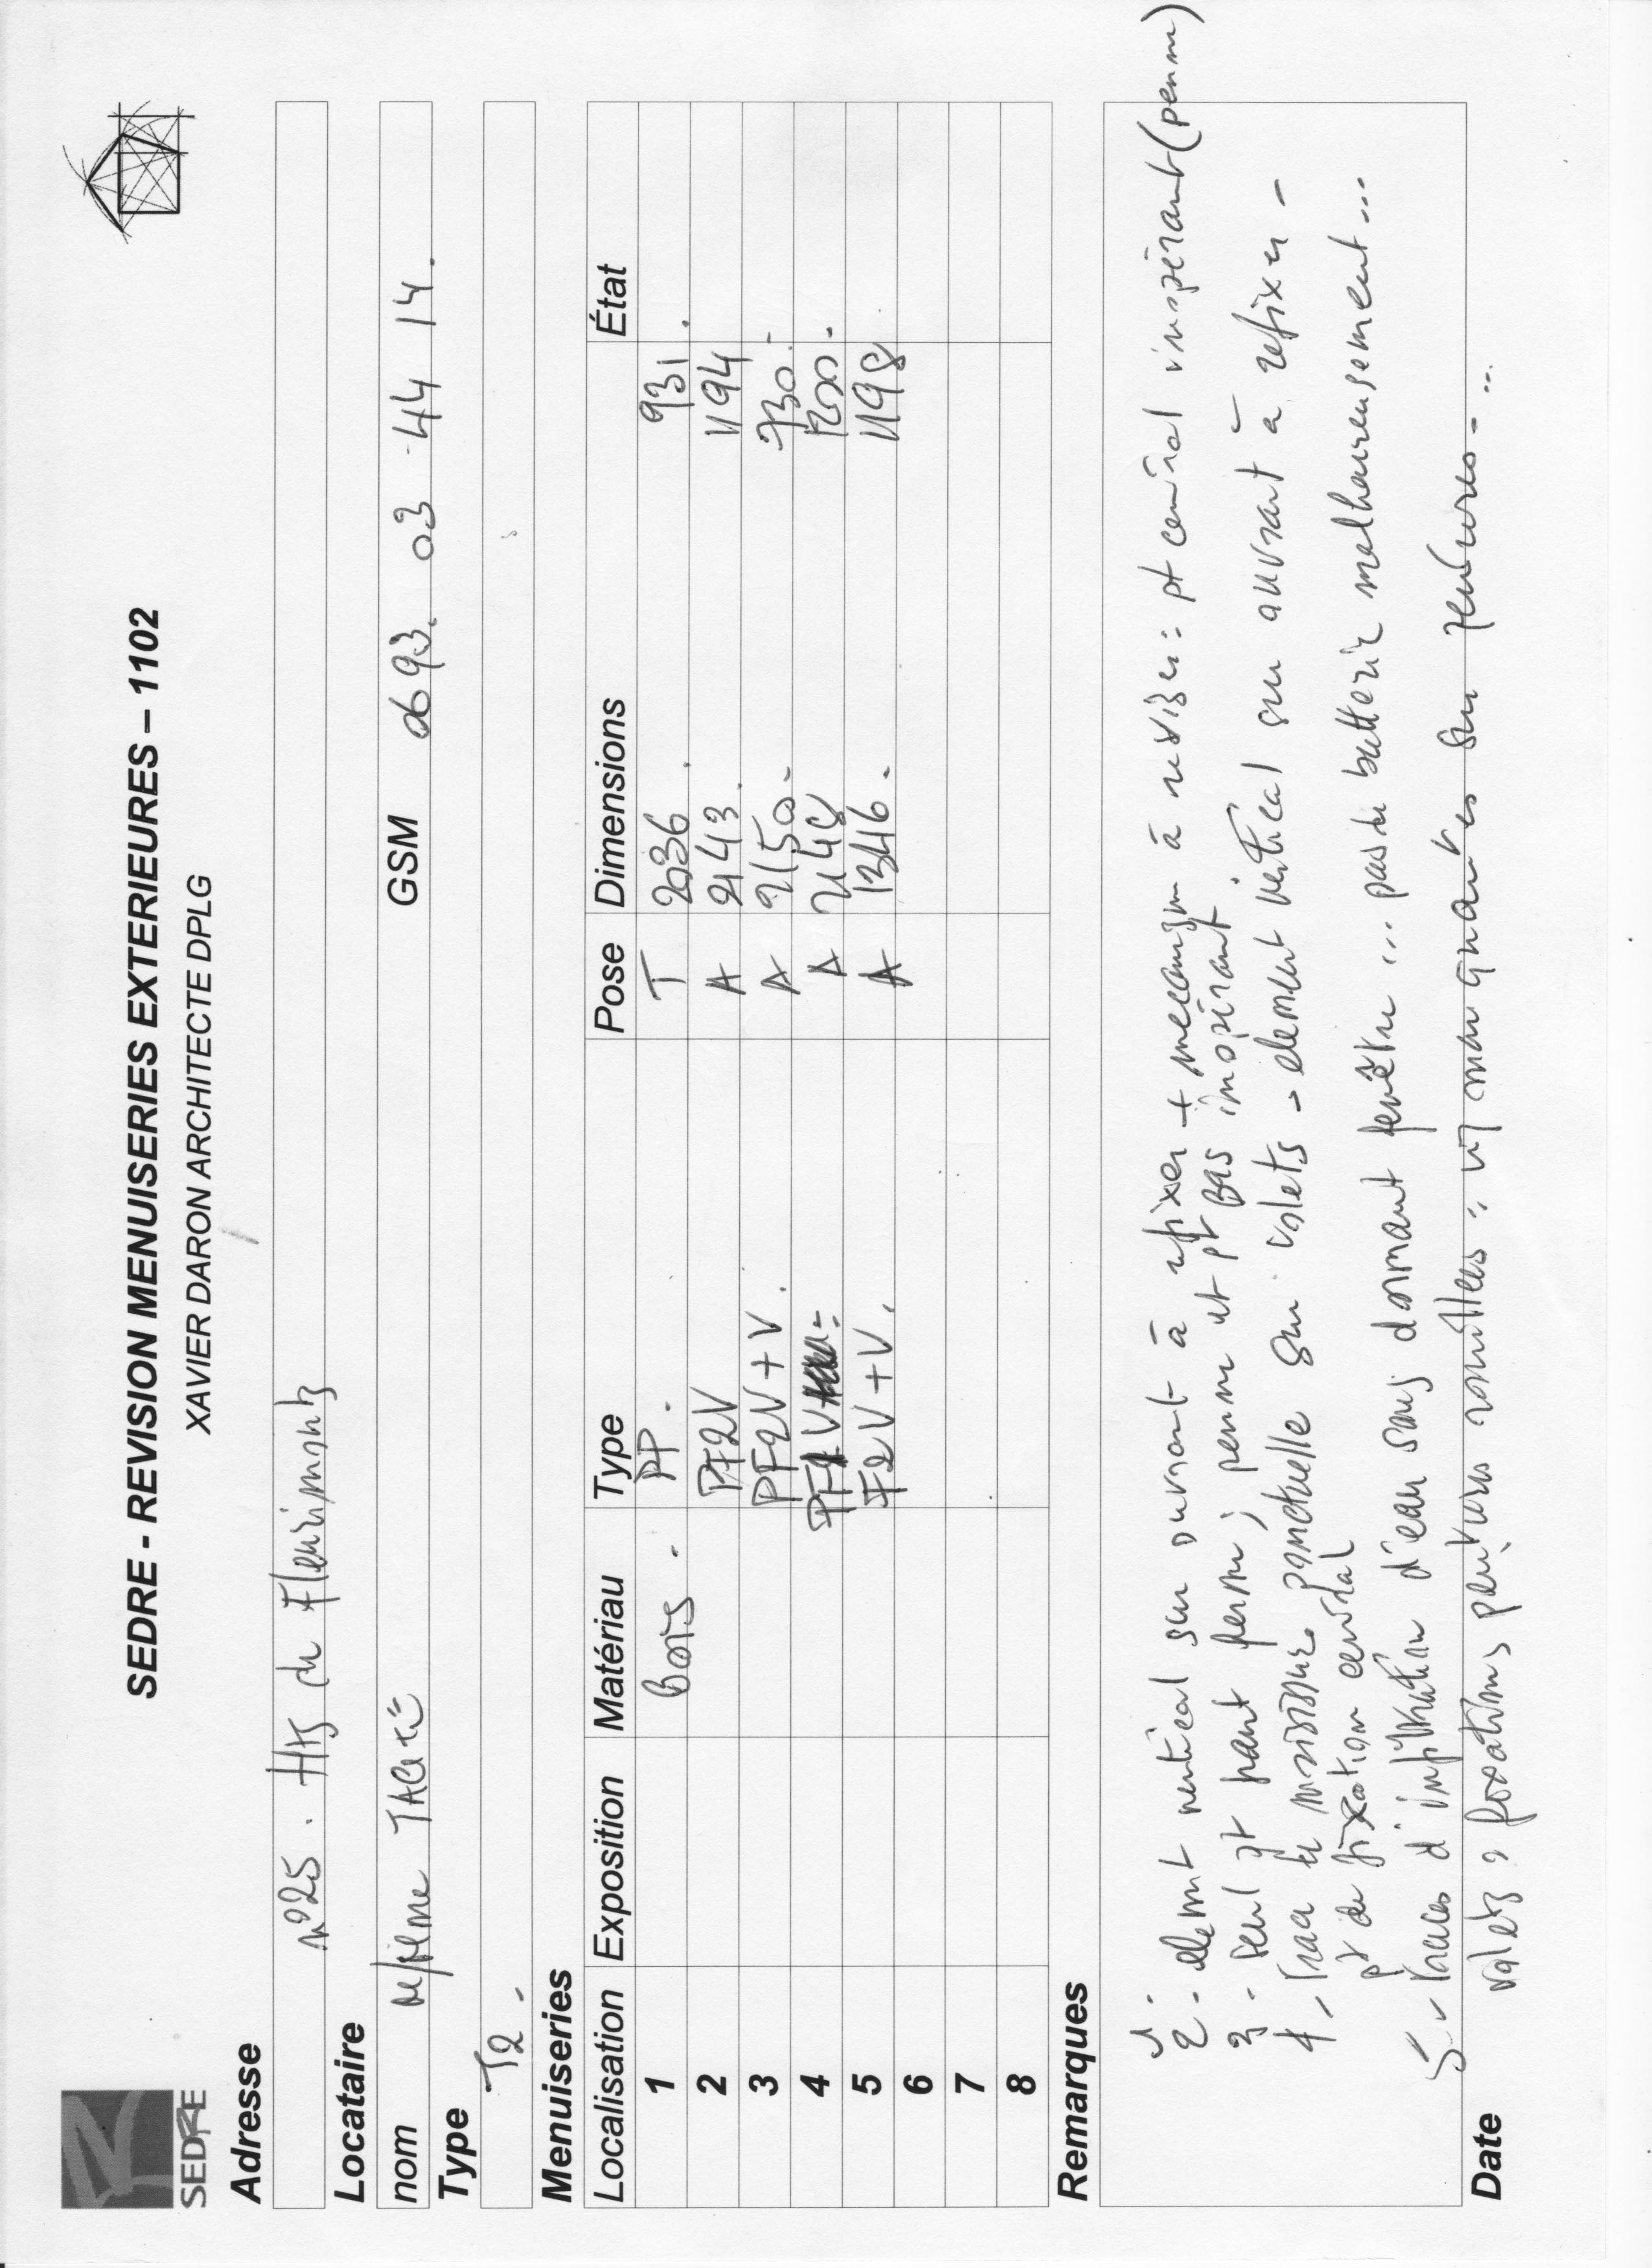 SEDRE
SEDRE - REVISION MENUISERIES EXTERIEURES – 1102
XAVIER DARON ARCHITECTE DPLG
Adresse
n°25. Hts de Fleurimont
Locataire
nom GSM 0693. 03 44 14.
Type
T2.
Menuiseries
Localisation Exposition Matériau Type Pose Dimensions État
1 Bois. PP. T 2036. 931.
2 PF2V A 2143. 1194
3 PF2V+V. A 2150. 730.
4 A 2148 1200.
5 F2V+V. A 1346. 1198
6
7
8
Remarques
1.
2. element vertical sur ouvrant à refixer + mecanism à reviser: pt central inopérant (penne)
3. seul pt haut ferme; penne et pt bas inopérant
4. trace de moisissure ponctuelle sur volets - element vertical sur ouvrant à refixer -
pt de fixation central
5. traces d'infiltration d'eau sous dormant fenêtre ... pas de batterie malheureusement...
volets, fixations pentures rouillées: vis manquantes sur pentures...
Date